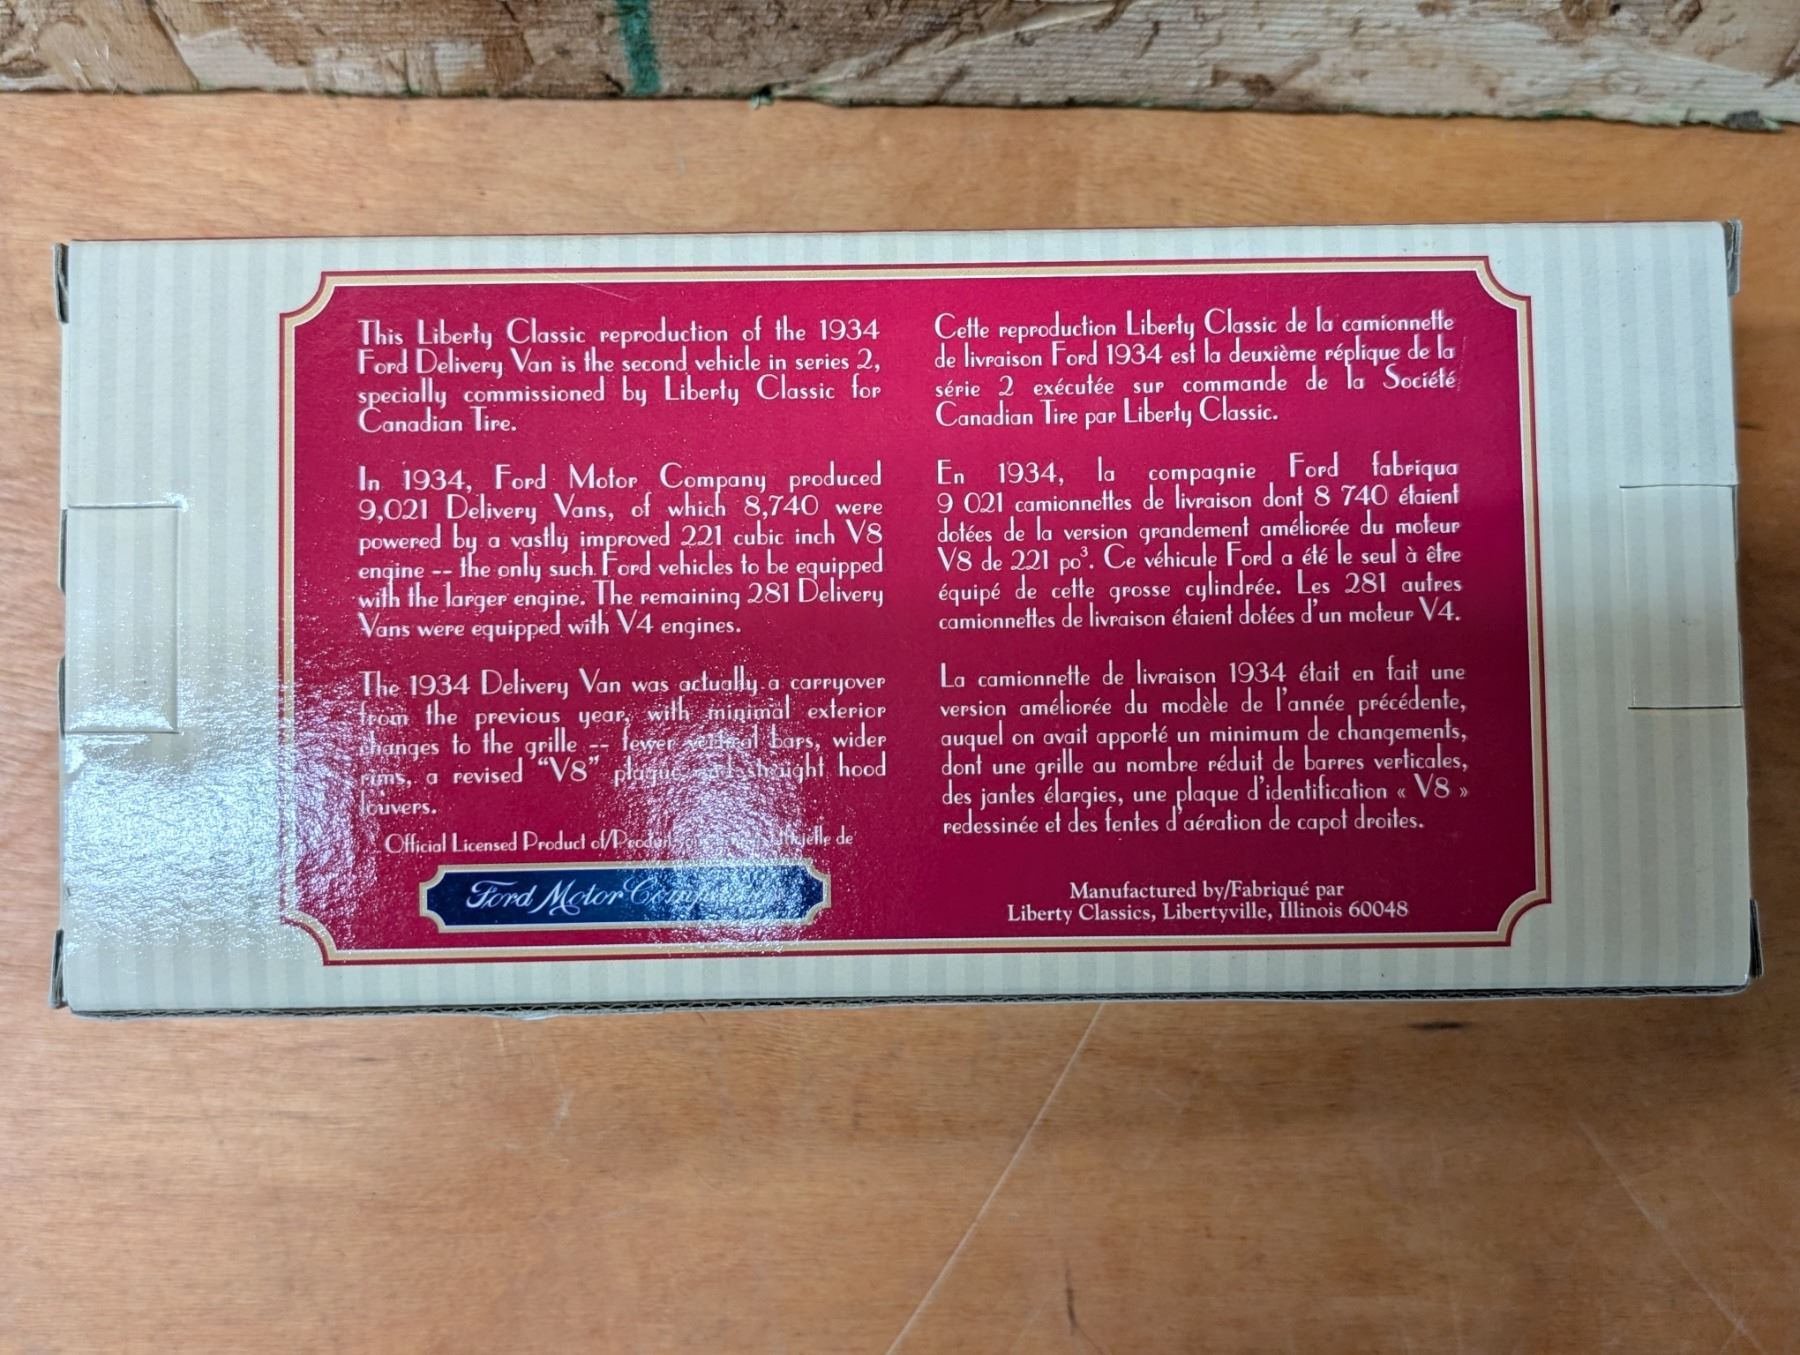 This Liberty Classic reproduction of the 1934
Ford Delivery Van is the second vehicle in series 2,
specially commissioned by Liberty Classic for
Canadian Tire.
In 1934, Ford Motor Company produced
9,021 Delivery Vans, of which 8,740 were
powered by a vastly improved 221 cubic inch V8
engine -- the only such Ford vehicles to be equipped
with the larger engine. The remaining 281 Delivery
Vans were equipped with V4 engines.
The 1934 Delivery Van was actually a carryover
from the previous year, with minimal exterior
changes to the grille -- fewer vertical bars, wider
rims, a revised "V8" plaque and straight hood
louvers.
Official Licensed Product of/ de
Ford Motor Company
Cette reproduction Liberty Classic de la camionnette
de livraison Ford 1934 est la deuxième réplique de la
série 2 exécutée sur commande de la Société
Canadian Tire par Liberty Classic.
En 1934, la compagnie Ford fabriqua
9 021 camionnettes de livraison dont 8 740 étaient
dotées de la version grandement améliorée du moteur
V8 de 221 po³. Ce véhicule Ford a été le seul à être
équipé de cette grosse cylindrée. Les 281 autres
camionnettes de livraison étaient dotées d'un moteur V4.
La camionnette de livraison 1934 était en fait une
version améliorée du modèle de l'année précédente,
auquel on avait apporté un minimum de changements,
dont une grille au nombre réduit de barres verticales,
des jantes élargies, une plaque d'identification « V8 »
redessinée et des fentes d'aération de capot droites.
Manufactured by/Fabriqué par
Liberty Classics, Libertyville, Illinois 60048